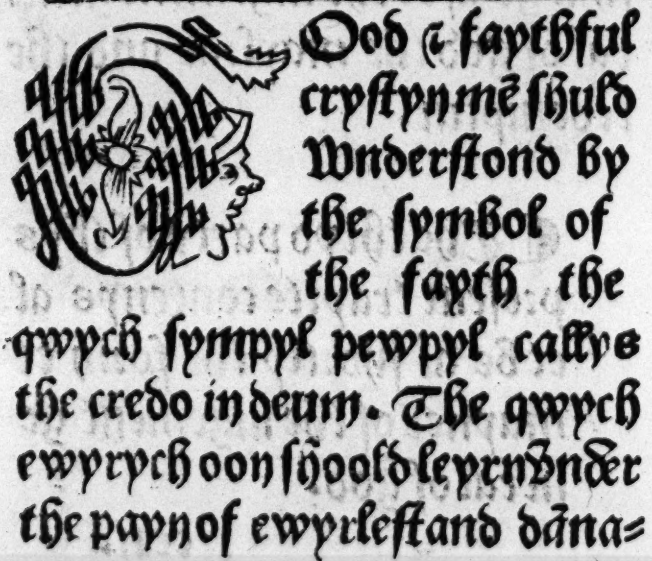 GOod ⁊ faythful
crystyn mē shuld
Wnderstond by
the symbol of
the fayth the
qwych sympyl pewpyl callys
the credo in deum. The qwych
ewyrych oon shoold leyrn vnder
the payn of ewyrlestand dāna=